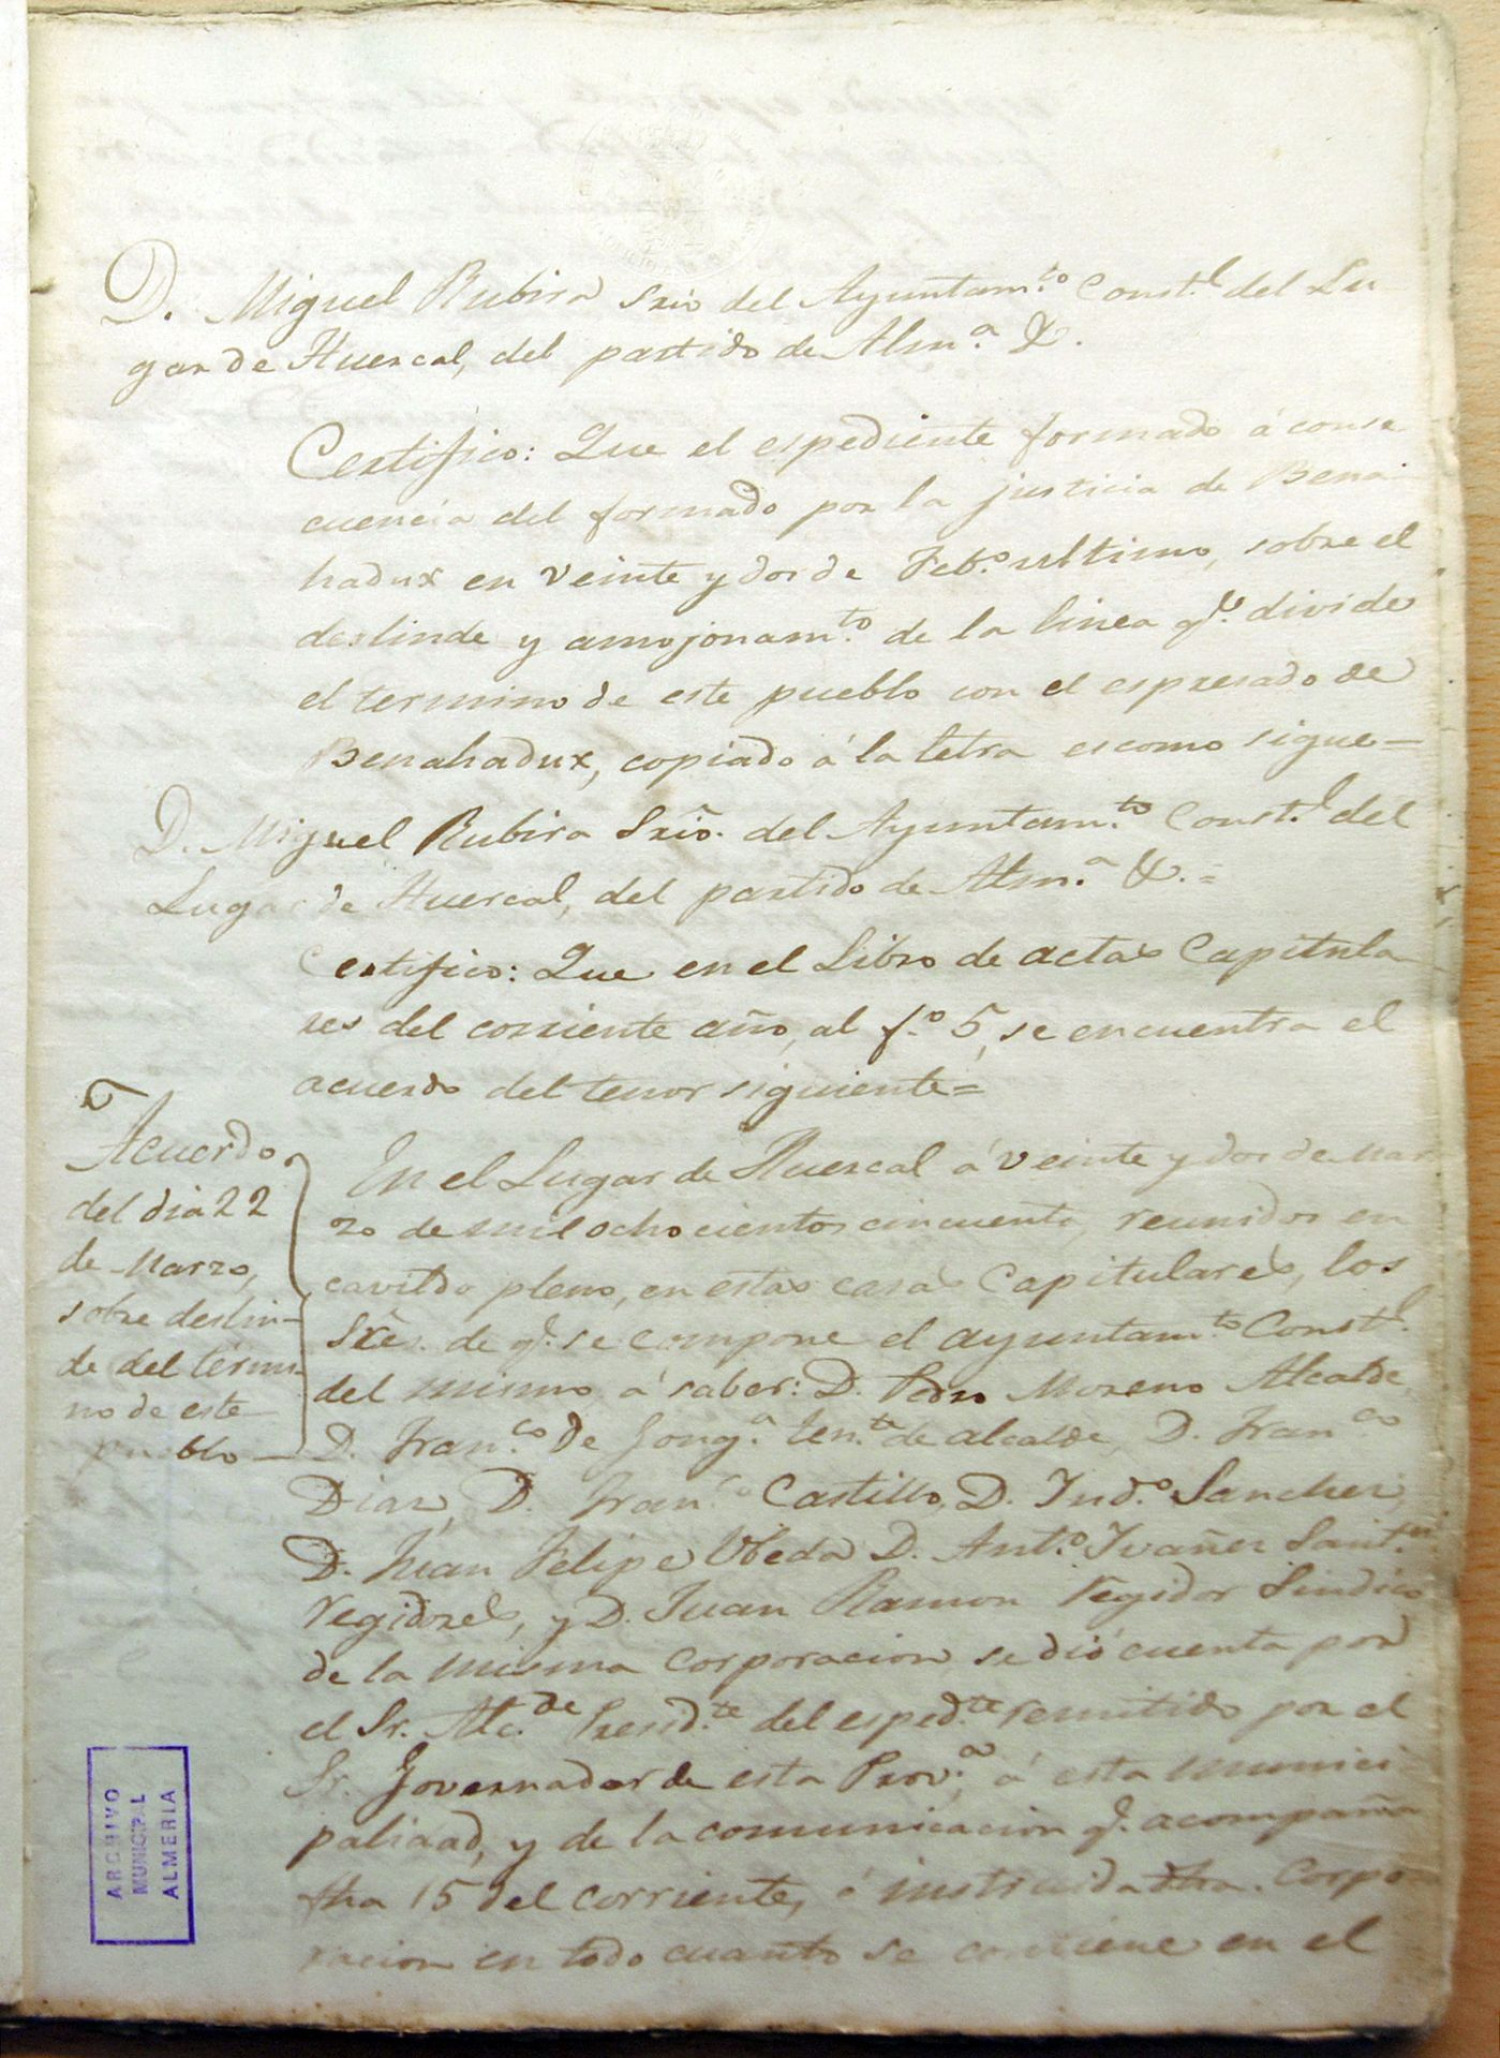 D. Miguel Rubira Srio del Ayuntam.to Const.l del Lu
gar de Huercal, del partido de Alm.a &.
Certifico: Que el espediente formado á conse
cuencia del formado por la justicia de Bena
hadux en veinte y dos de Feb.o ultimo, sobre el
deslinde y amojonam.to de la linea q.e divide
el termino de este pueblo con el espresado de
Benahadux, copiado á la letra es como sigue=
D. Miguel Rubira Srio. del Ayuntam.to Const.l del
Lugar de Huercal, del partido de Alm.a &.=
Certifico: Que en el Libro de actas Capitula
res del corriente año, al f.o 5, se encuentra el
acuerdo del tenor siguiente=
Acuerdo
del dia 22
de Marzo,
sobre deslin-
de del termi-
no de este
pueblo
En el Lugar de Huercal á veinte y dos de Mar
zo de mil ochocientos cincuenta, reunidos en
cavildo pleno, en estas casas Capitulares, los
Sres. de q.e se compone el ayuntam.to Const.l
del mismo á saber: D. Pedro Moreno Alcalde
D. Fran.co de Gong.a ten.te de alcalde, D. Fran.co
Diaz, D. Fran.co Castillo, D. Ind.o Sanchez,
D. Juan Felipe Ubeda D. Ant.o Ivañez
regidores, y D. Juan Ramon regidor Sindico
de la misma corporacion se dió cuenta por
el Sr. Alc.de Presid.te del esped.te remitido por el
Sr. Governador de esta Prov.a á esta munici
palidad, y de la comunicacion q.e acompaña
fha 15 del corriente, é instruida dha. Corpo
racion en todo cuanto se contiene en el
ARCHIVO
MUNICIPAL
ALMERIA